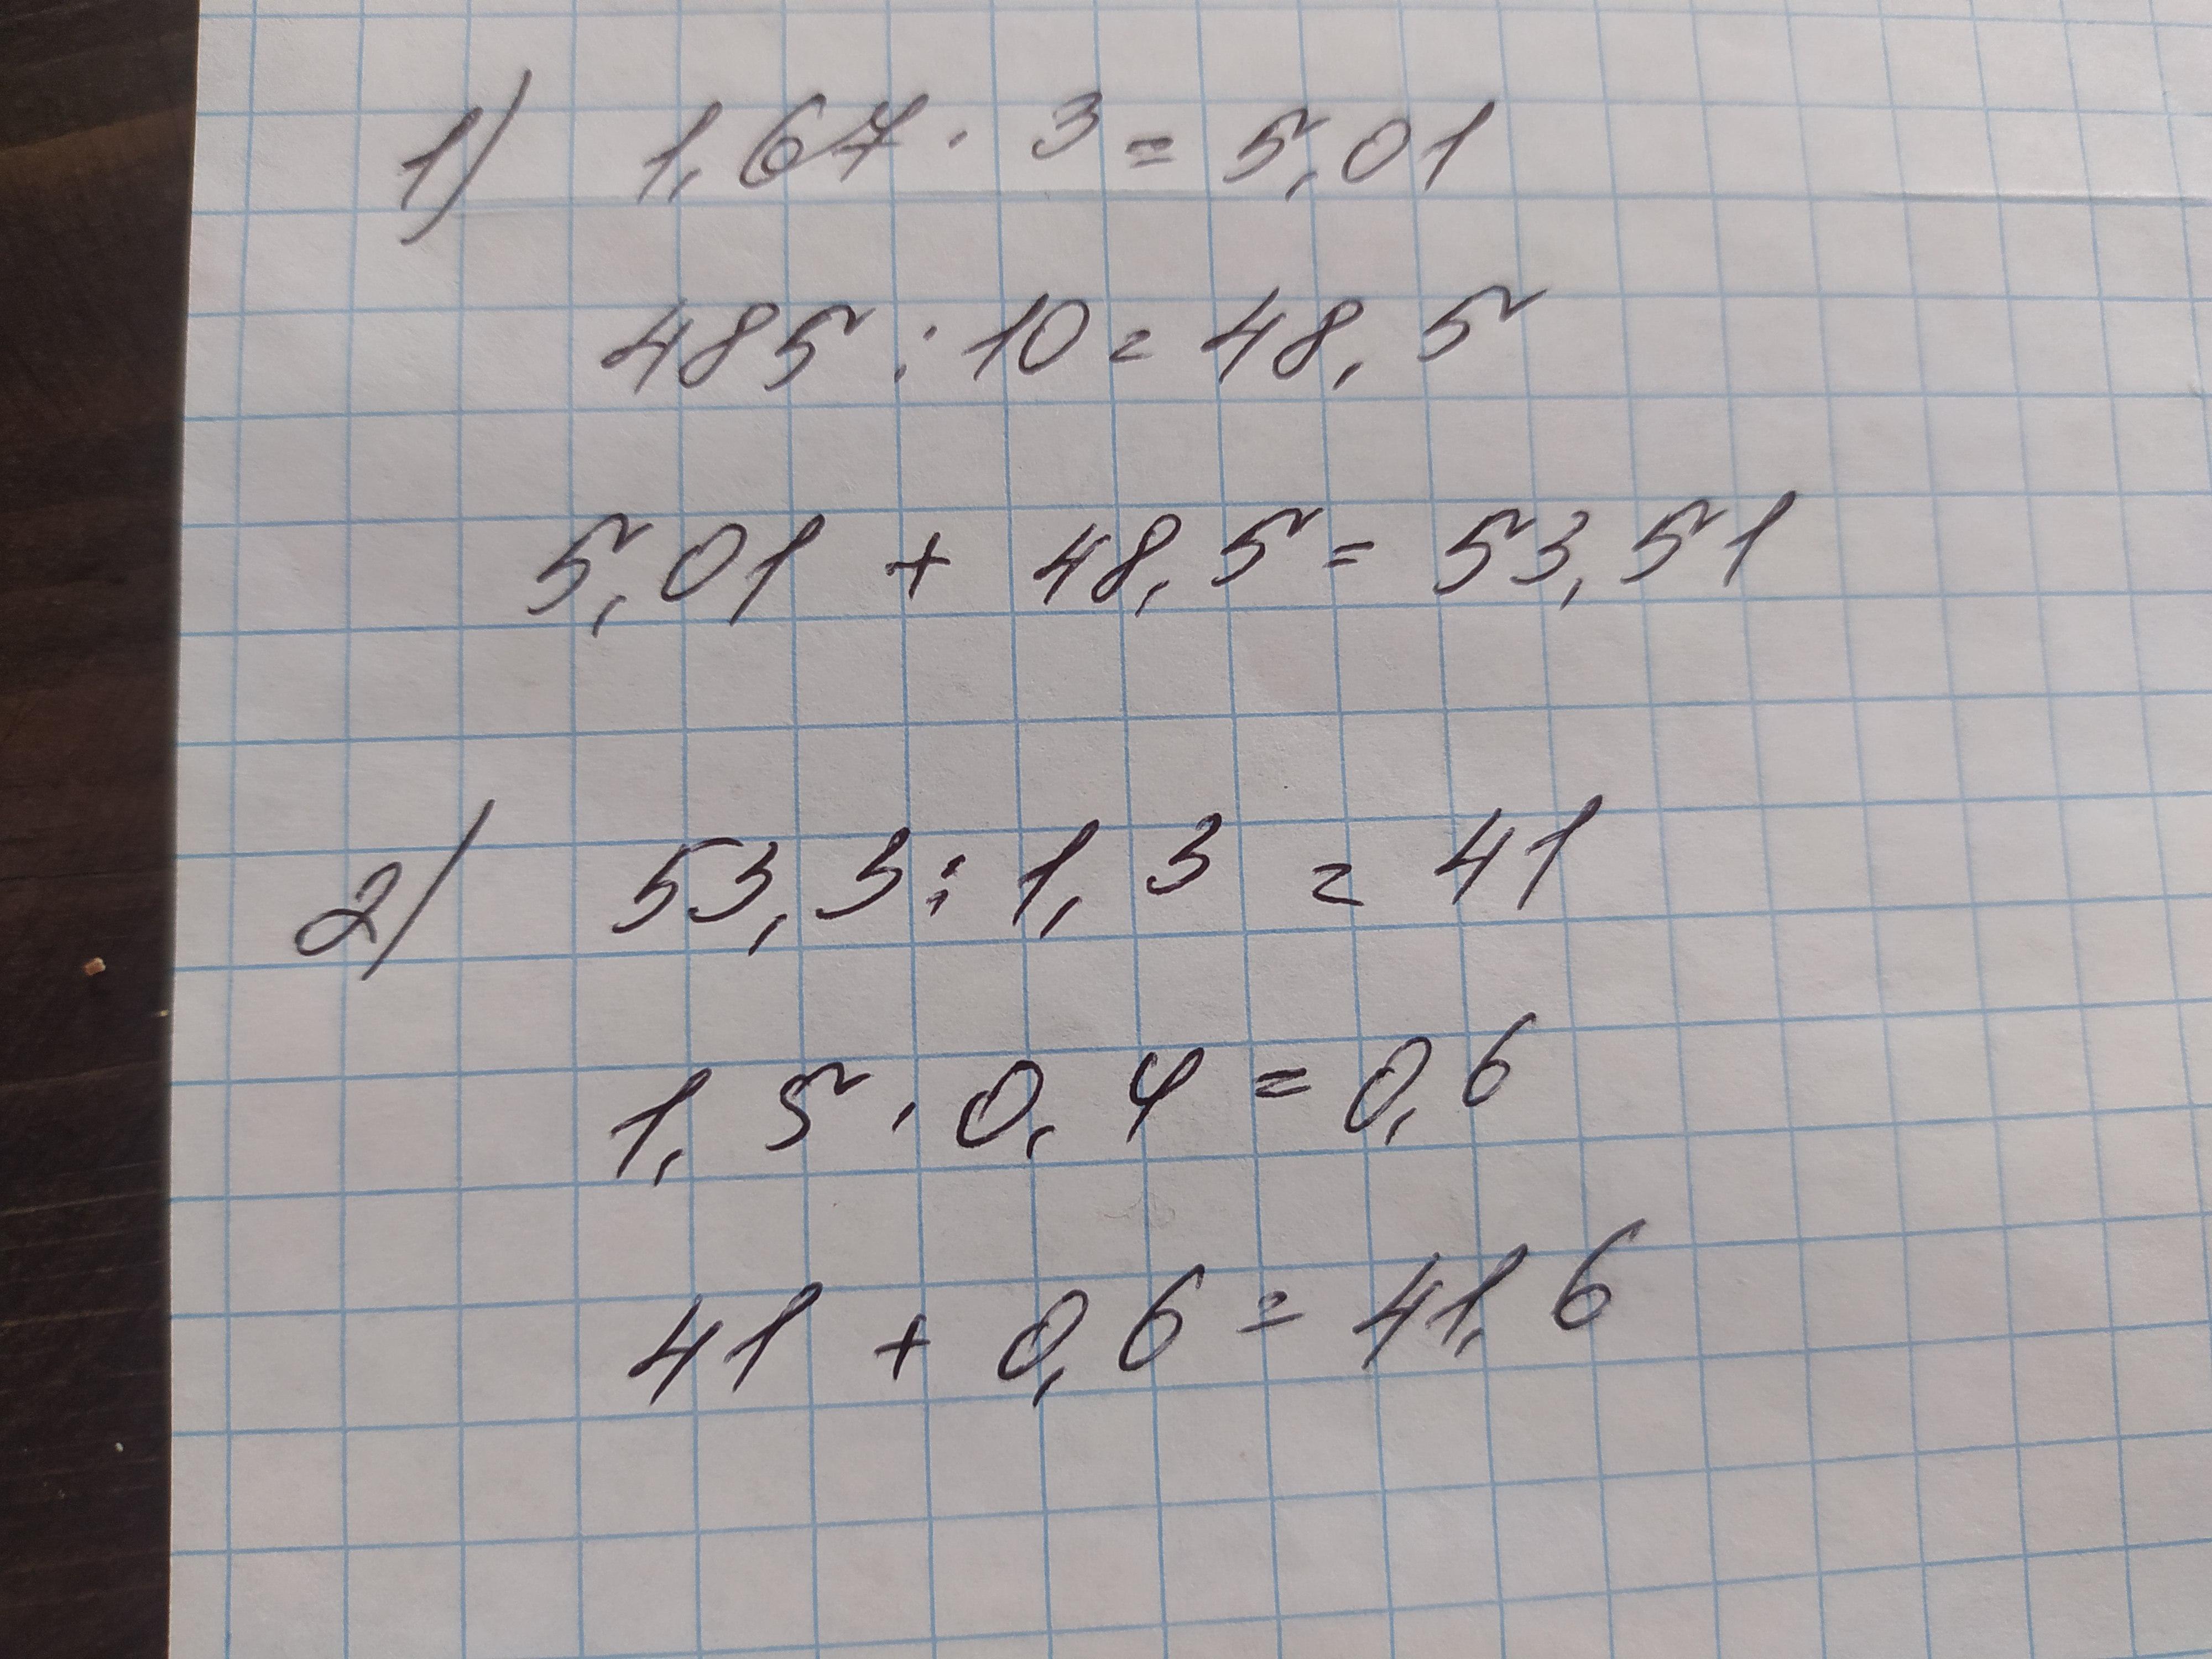 1) 1,67 · 3 = 5,01
485 : 10 = 48,5
5,01 + 48,5 = 53,51
2) 53,3 : 1,3 = 41
1,5 · 0,4 = 0,6
41 + 0,6 = 41,6